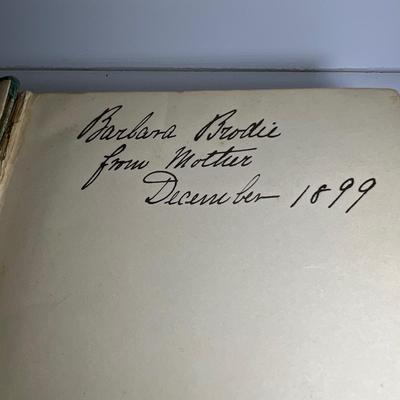 Barbara Brodie
from Mother
December 1899